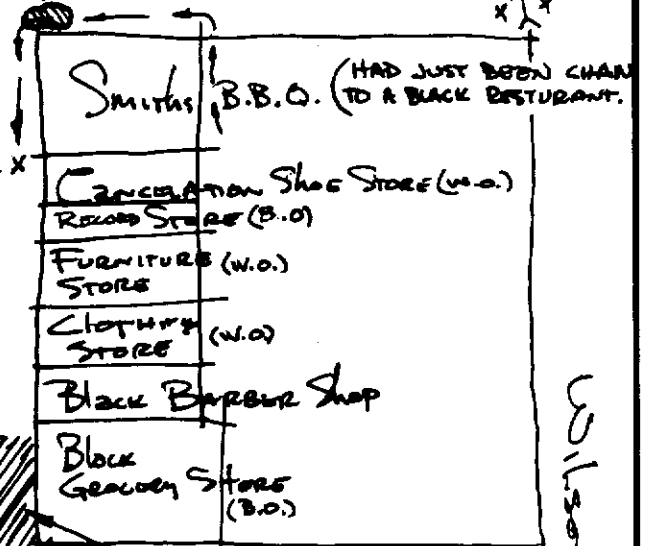 x x
Smiths B.B.Q. (HAD JUST BEEN CHAN
TO A BLACK RESTURANT.
x
CANCELATION SHOE STORE (W.O.)
RECORD STORE (B.O)
FURNITURE (W.O.)
STORE
CLOTHING (W.O)
STORE
Black BARBER Shop
Block
GROCERY STORE
(B.O.)
Wilso